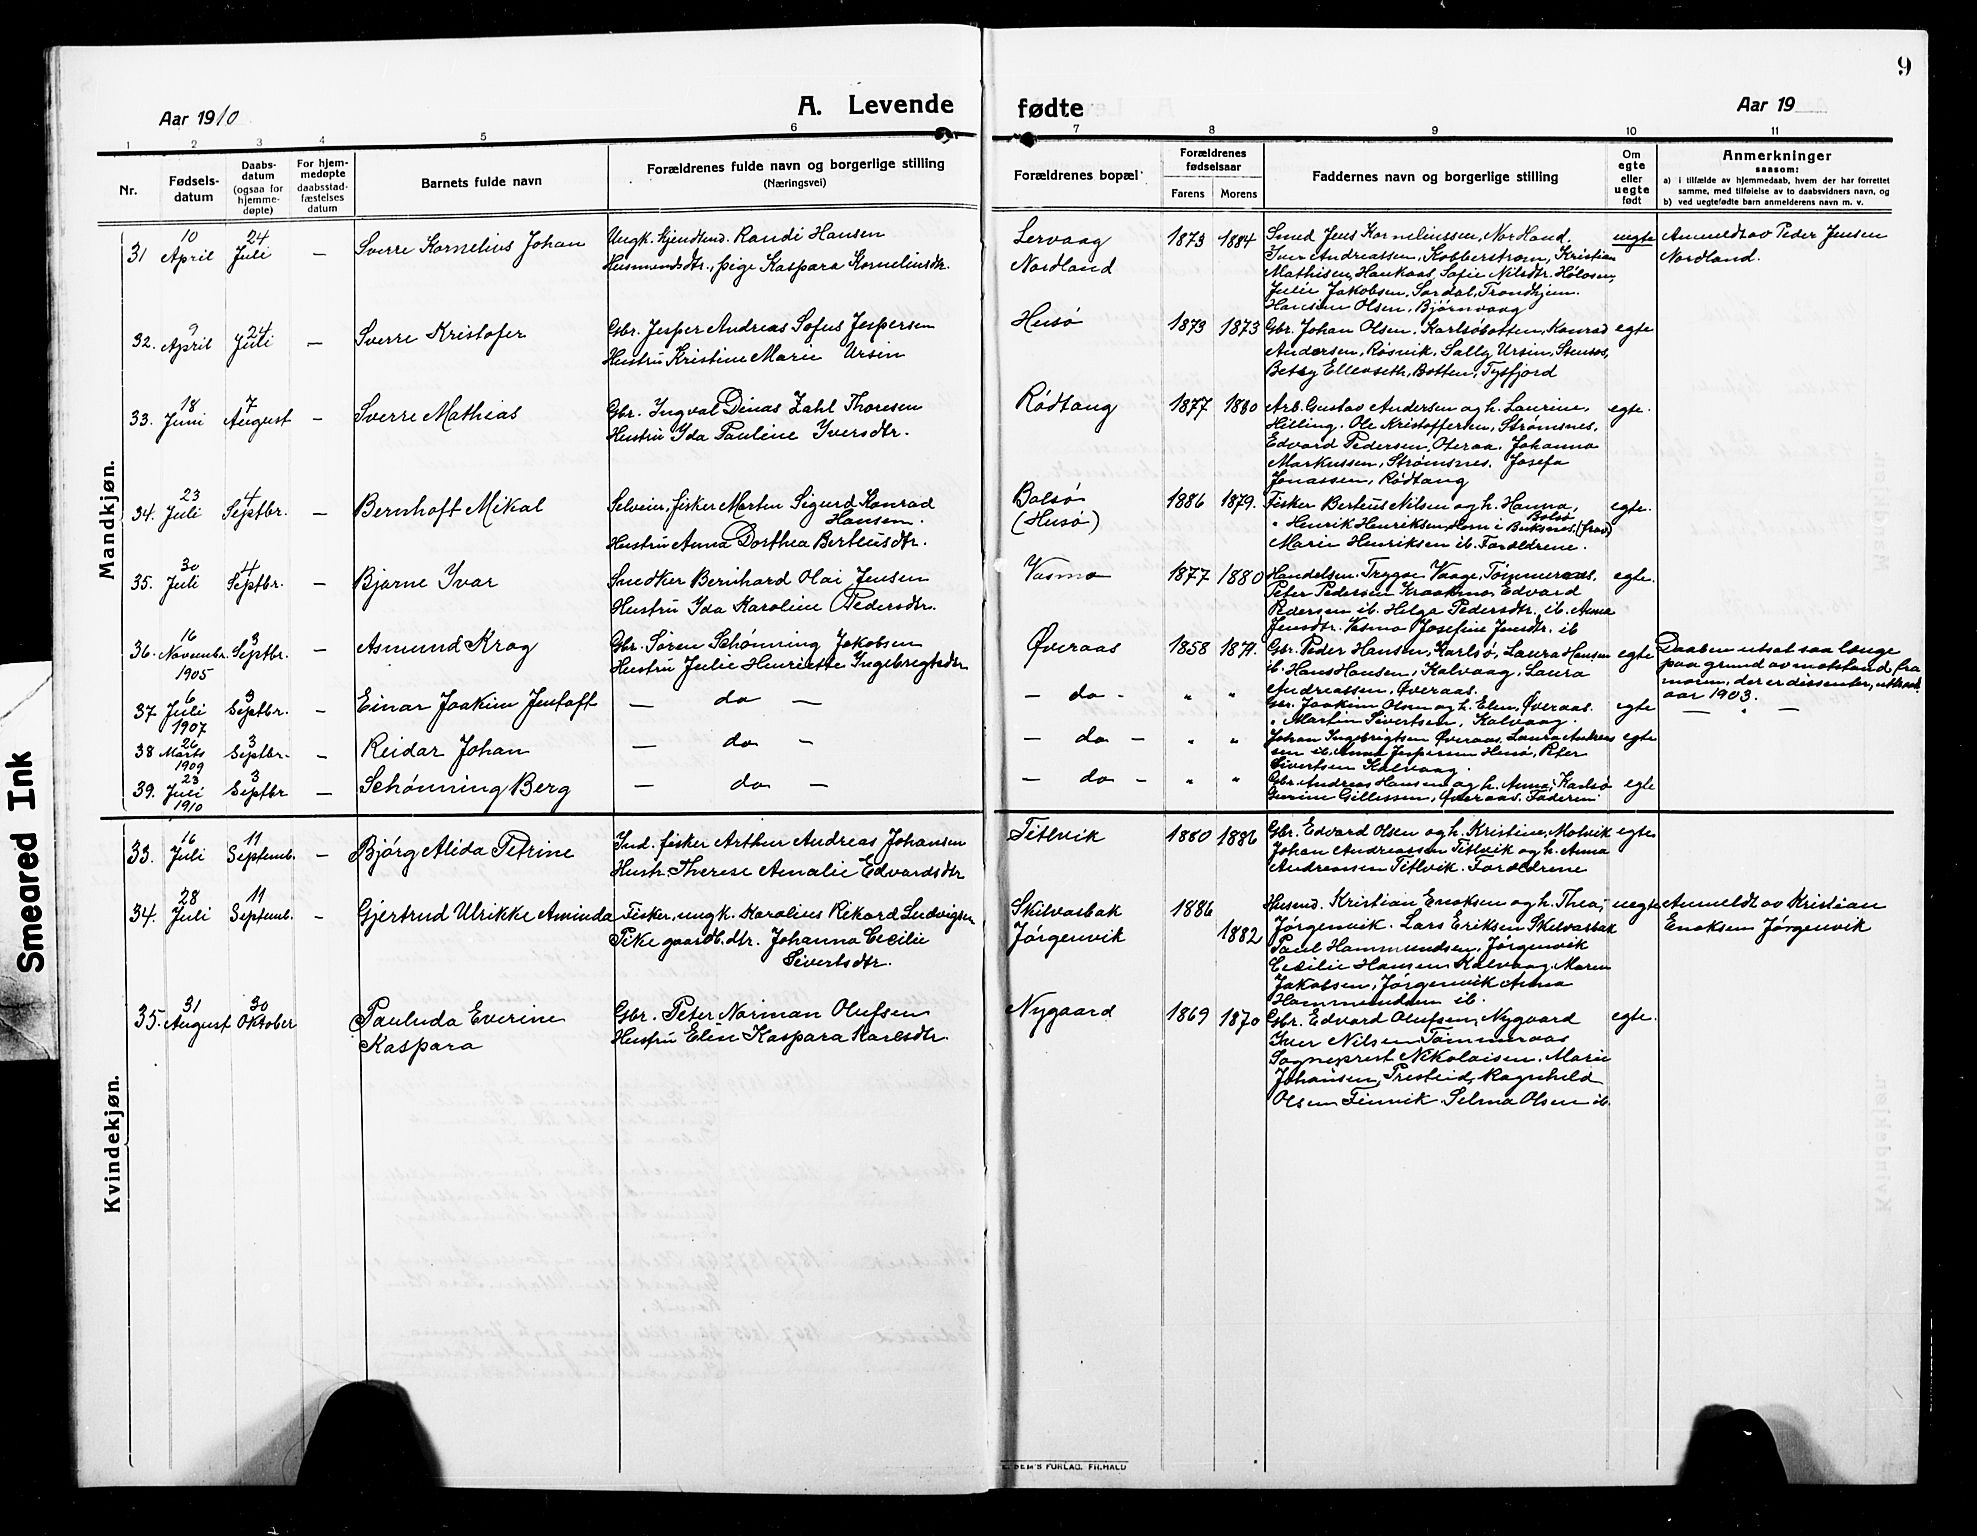 9
Aar 1910
A. Levende fødte
Aar 19
1 2 3 4 5 6 7 8 9 10 11
Nr.
Fødsels-
datum
Daabs-
datum
(ogsaa for
hjemme-
døpte)
For hjem-
medøpte
daabsstad-
fæstelses
datum
Barnets fulde navn
Forældrenes fulde navn og borgerlige stilling
(Næringsvei)
Forældrenes bopæl
Forældrenes
fødselsaar
Farens Morens
Faddernes navn og borgerlige stilling
Om
egte
eller
uegte
født
Anmerkninger
saasom:
a) i tilfælde av hjemmedaab, hvem der har forrettet
samme, med tilføielse av to daabsvidners navn, og
b) ved uegtefødte barn anmelderens navn m. v.
Mandkjøn.
31 10 April 24 Juli — Sverre Kornelius Johan
Ungk. Randi Hansen
Husmandsdtr., pige Kaspara Kornelinsdtr.
Lervaag
Nordland
1873 1884
Smed Jens Kornelinssen, Nordland,
Iver Andreassen, Kobberstrøm, Kristian
Mathisen, Haukaas, Sofie Nilsdtr. Holosen,
Julie Jakobsen, Sørdal, Trondhjem.
Hansine Olsen, Bjørnvaag
uegte
Anmeldt av Peder Jensen
Nordland.
32. 9 April 24 Juli — Sverre Kristofer
Gbr. Jesper Andreas Sofus Jespersen
Hustru Kristine Marie Ursin
Husø
1873 1873
Gbr. Johan Olsen, Karlsøbotten, Konrad
Andersen, Røsvik, Sally Ursin, Stensos,
Betsy Ellevseth, Botten, Tysfjord
egte
33. 18 Juni 7 August — Sverre Mathias
Gbr. Ingval Dinas Zahl Thoresen
Hustru Ida Pauline Iversdtr.
Rødtang
1877 1880
Arb. Gustav Andersen og h. Laurine,
Hilling. Ole Kristoffersen, Strømsnes,
Edvard Pedersen, Oteraa, Johanna
Markussen, Strømsnes, Josefa
Jonassen, Rødtang
egte.
34. 23 Juli 4 Septbr. — Bernhoft Mikal
Selveier, fisker Morten Sigurd Konrad
Hansen.
Hustru Anna Dorthea Berteusdtr.
Bolsø
(Husø)
1886 1879.
Fisker Berteus Nilsen og h. Hanna,
Bolsø
" Henrik Henriksen, Hom i Buksnes, (frav)
Marie Henriksen ib. Forældrene.
egte.
35. 30 Juli 4 Septbr. — Bjarne Ivar
Snedker Bernhard Olai Jensen
Hustru Ida Karoline Pedersdtr.
Vasmo
1877 1880
Handelsm. Trygve Vaage, Tømmeraas,
Peter Pedersen Kraakmo, Edvard
Pedersen ib. Helga Pedersdtr. ib. Anna
Jensdtr. Vasmo Josefine Jensdtr. ib
egte.
36. 16 Novembr. 1905 3 Septbr. — Asmund Krog
Gbr. Søren Schønning Jakobsen
Hustru Julie Henriette Ingebrigtsdtr
Øveraas
1858 1871.
Gbr. Peder Hansen, Karlsø, Laura Hansen
ib. Hans Hansen, Kalvaag, Laura
Andreassen, Øveraas.
egte
Daaben utsat saa længe
paa grund av motstand fra
moren, der er dissenter, uttraadt
aar 1903.
37 6 Juli 1907 3 Septbr. — Einar Joakim Jentoft
— do —
— do - " "
Gbr. Joakim Olsen og h. Elen, Øveraas.
" Martin Sivertsen, Kalvaag.
egte
— " —
38 26 Marts 1909 3 Septbr. — Reidar Johan
— do —
— do - " "
Johan Ingebrigtsen Øveraas, Laura Andreas
sen ib. Anna Jespersen Husø, Peter
Sivertsen Kalvaag.
egte
39. 23 Juli 1910 3 Septbr — Schønning Berg
— do —
— do - " "
Gbr. Andreas Hansen og h. Anna, Karlsø
Gurine Gillissen, Øveraas. Faderen
egte
Kvindekjøn.
33. 16 Juli 11 Septemb. — Bjørg Alida Petrine
Ind. fisker Arthur Andreas Johansen
Hustr. Therese Amalie Edvardsdtr
Titlvik
1880 1886
Gbr. Edvard Olsen og h. Kristine, Motvik
Johan Andreassen Titlvik og h. Anna
Andreassen Titlvik. Forældrene
egte
34. 28 Juli 11 Septemb. — Gjertrud Ulrikke Aminda
Fisker, ungk. Karolius Rikard Ludvigsen
Pike gaardb.dtr. Johanna Cecilie
Sivertsdtr.
Skilvasbak
Jørgenvik
1886
1882
Husmd. Kristian Enoksen og h. Thea,
Jørgenvik. Lars Eriksen Skilvasbak
Paul Hammundsen, Jørgenvik
Cecilie Hansen Kalvaag. Maren
Jakobsen, Jørgenvik Anna
Hammundsen ib.
uegte
Anmeldt av Kristian
Enoksen Jørgenvik
35. 31 August 30 Oktober Pauluda Everine
Kaspara
Gbr. Peter Norman Olufsen
Hustru Elen Kaspara Karlsdtr.
Nygaard
1869 1870
Gbr. Edvard Olufsen, Nygaard
Iver Nilsen Tømmeraas
Sogneprest Nikolaisen. Marie
Johansen, Presteid, Ragnhild
Olsen Finnvik. Selma Olsen ib.
egte.
FORLAG. FR.HALD
Smeared Ink